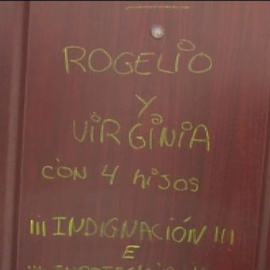 ROGELIO
Y
VIRGINIA
con 4 hijos
¡¡¡ INDIGNACIÓN !!!
E